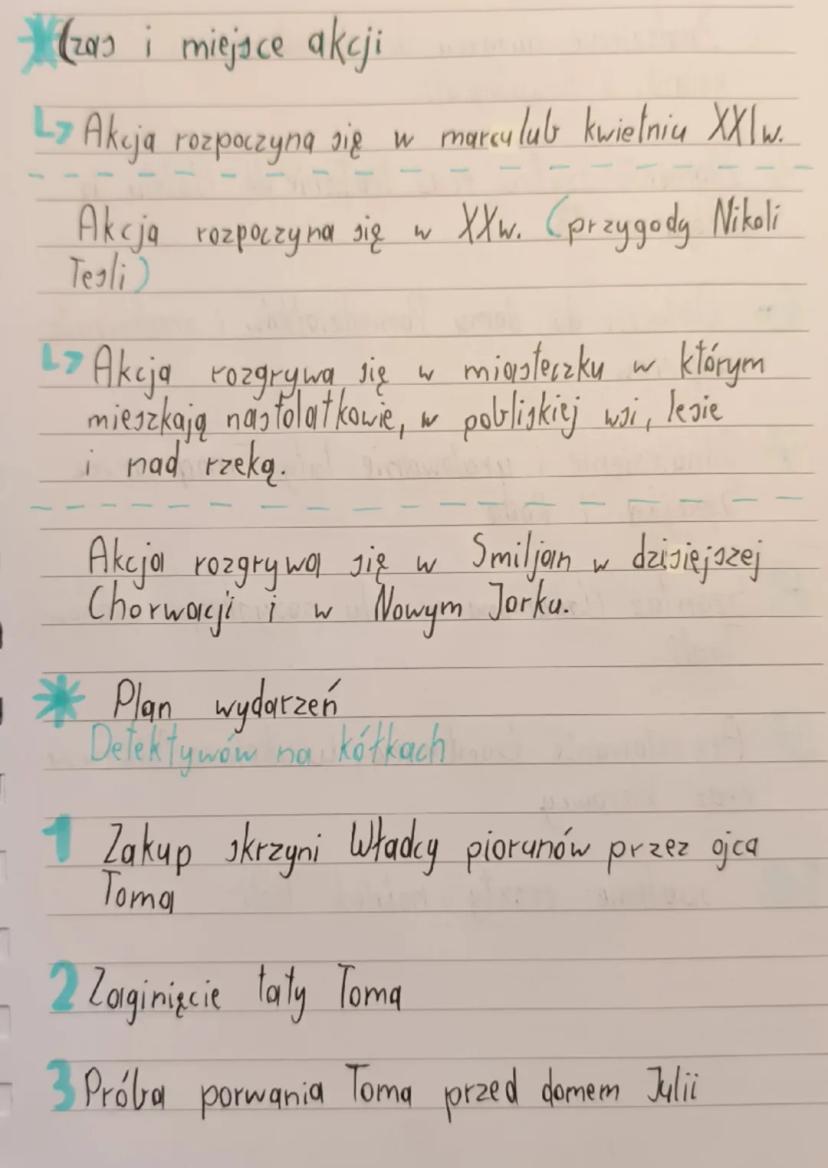 Czas i miejsce akcji
Akcja rozpoczyna się w marcu lub kwietniu XXI w.
Akcja rozpoczyna się w XX w. (przygody Nikoli
Tesli)
Akcja rozgrywa się w miasteczku w którym
mieszkają nastolatkowie, w pobliskiej wsi, lesie
i nad rzeką.
Akcja rozgrywa się w Smiljan w dzisiejszej
Chorwacji i w Nowym Jorku.
Plan wydarzeń
Detektywów na kółkach
1 Zakup skrzyni Władcy piorunów przez ojca
Toma
2 Zaginięcie taty Toma
3 Próba porwania Toma przed domem Julii